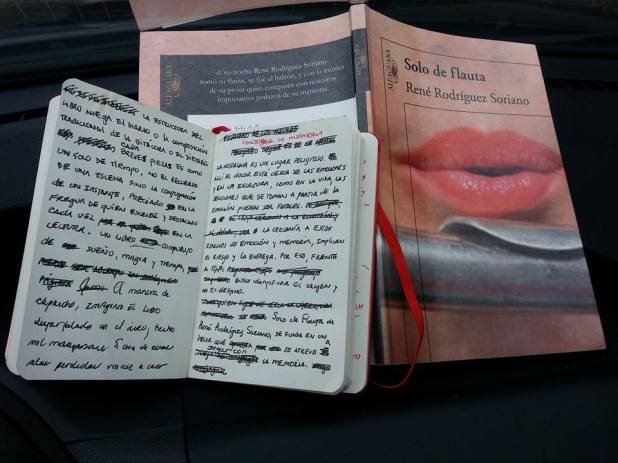 ALFAGUARA
«Una noche René Rodríguez Soriano
tomó su flauta, se fue al balcón, y con la música
de su prosa quiso compartir con nosotros
importantes pedazos de su memoria.
ALFAGUARA
Solo de flauta
René Rodríguez Soriano
LA ESTRUCTURA DEL
LIBRO NIEGA EL DIARIO O LA COMPOSICIÓN
TRADICIONAL DE LA BITÁCORA O EL DIETARIO.
CADA
BREVES PIEZAS ES COMO
UN SOLO DE TIEMPO, NO EL RECUERDO
DE UNA ESCENA SINO LA CONJUGACIÓN
DE UN INSTANTE, PRECISADO EN LA
FRAGUA DE QUIEN ESCRIBE Y DESTILADO
CADA VEZ EN LA
LECTURA. UN LIBRO
DE SUEÑO, MAGIA Y TIEMPO,
A manera de
capricho, IMAGINO EL LIBRO
hecho
mil mariposas
CONJUGAR LA MEMORIA
LA NOSTALGIA ES UN LUGAR PELIGROSO.
ALLÍ EL LECTOR ESTÁ CERCA DE LAS EMOCIONES
Y EN LA ESCRITURA, COMO EN LA VIDA, LAS
DECISIONES QUE SE TOMAN A PARTIR DE LA
EMOCIÓN PUEDEN SER FATALES.
LA CERCANÍA A ESTOS
ESPACIOS DE EMOCIÓN Y MEMORIA, IMPLICAN
EL RIESGO Y LA ENTREGA. POR ESO, FRENTE
identificar EL ORIGEN Y
EL DESTINO.
Solo de Flauta de
René Rodríguez Soriano, SE FUNDA EN UN
SE ATREVE A
JUGAR CON
LA MEMORIA.